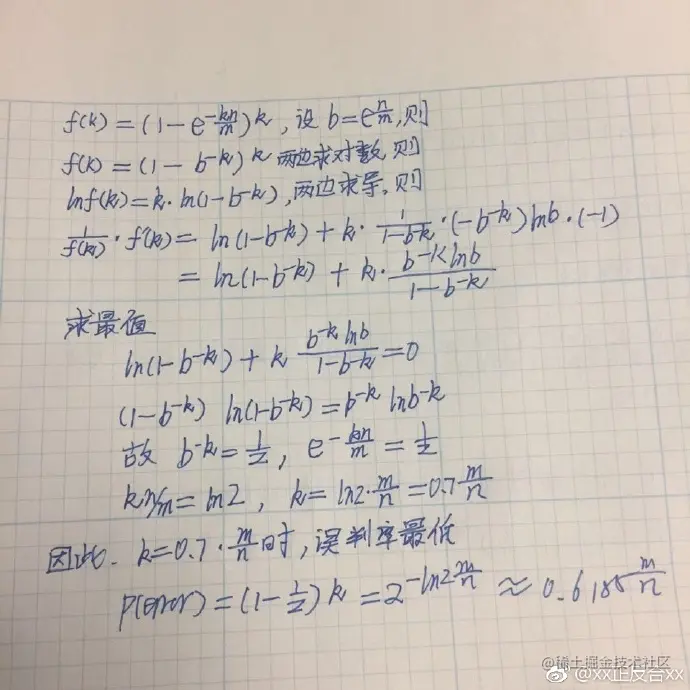 f(k) = (1 - e^{-kn/m})^k , 设 b = e^{n/m}, 则
f(k) = (1 - b^{-k})^k 两边求对数, 则
ln f(k) = k · ln(1 - b^{-k}), 两边求导, 则
1/f(k) · f'(k) = ln(1 - b^{-k}) + k · 1/(1 - b^{-k}) · (-b^{-k}) lnb · (-1)
= ln(1 - b^{-k}) + k · (b^{-k} lnb)/(1 - b^{-k})
求最值
ln(1 - b^{-k}) + k (b^{-k} lnb)/(1 - b^{-k}) = 0
(1 - b^{-k}) ln(1 - b^{-k}) = b^{-k} ln b^{-k}
故 b^{-k} = 1/2 , e^{-kn/m} = 1/2
kn/m = ln2 , k = ln2 · m/n = 0.7 m/n
因此. k = 0.7 · m/n 时, 误判率最低
P(error) = (1 - 1/2)^k = 2^{-ln2 m/n} ≈ 0.6185^{m/n}
@稀土掘金技术社区
@xx正反合xx